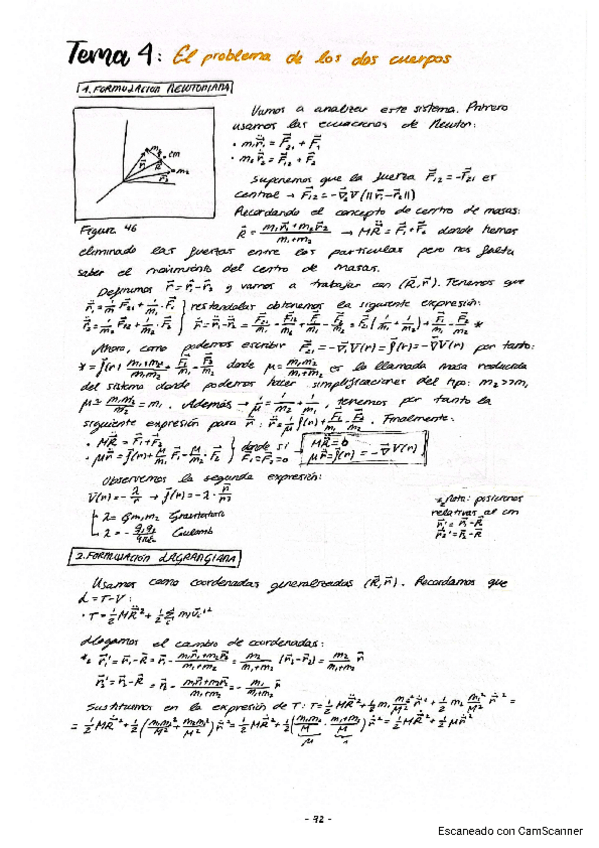 Tema 4: El problema de los dos cuerpos
1. FORMULACIÓN NEWTONIANA
Vamos a analizar este sistema. Primero
usamos las ecuaciones de Newton:
• m₁r̈₁ = F₂₁ + F₁
• m₂r̈₂ = F₁₂ + F₂
Suponemos que la fuerza F₁₂ = -F₂₁ es
central → F₁₂ = -∇₂V(||r₁-r₂||)
Recordando el concepto de centro de masas:
Figura 46
R = (m₁r₁ + m₂r₂)/(m₁+m₂) → MR̈ = F₁+F₂ donde hemos
eliminado las fuerzas entre las partículas pero nos falta
saber el movimiento del centro de masas.
Definimos r = r₁-r₂ y vamos a trabajar con (R, r). Tenemos que
restandolas obtenemos la siguiente expresión:
Ahora, como podemos escribir F₂₁ = -∇₁V(r) = f(r) = -∇V(r) por tanto:
donde μ = m₁m₂/(m₁+m₂) es la llamada masa reducida
del sistema donde podemos hacer simplificaciones del tipo: m₂>>m₁
μ ≃ m₁m₂/m₂ = m₁. Además → 1/μ = 1/m₂ + 1/m₁, tenemos por tanto la
siguiente expresión para r̈: r̈ = 1/μ f(r) + F₁/m₁ - F₂/m₂. Finalmente:
• MR̈ = F₁+F₂
• μr̈ = f(r) + μ/m₁ F₁ - μ/m₂ F₂ } donde si F₁=F₂=0 → MR̈ = 0
μr̈ = f(r) = -∇V(r)
Observemos la segunda expresión:
V(r) = -λ/r → f(r) = -λ · r/r³
λ = G m₁m₂ Gravitatorio
λ = - q₁q₂/4πε Coulomb
* Nota: posiciones
relativas al cm
r₁' = r₁-R
r₂' = r₂-R
2. FORMULACIÓN LAGRANGIANA
Usamos como coordenadas generalizadas (R, r). Recordamos que
L = T-V:
• T = 1/2 MṘ² + 1/2 Σ mᵢvᵢ'²
Hagamos el cambio de coordenadas:
*₂ r₁' = r₁-R = r₁ - (m₁r₁+m₂r₂)/(m₁+m₂) = m₂/(m₁+m₂) (r₁-r₂) = m₂/(m₁+m₂) r
r₂' = r₂-R = r₂ - (m₁r₁+m₂r₂)/(m₁+m₂) = - m₁/(m₁+m₂) r
Sustituimos en la expresión de T: T = 1/2 MṘ² + 1/2 m₁ m₂²/M² ṙ² + 1/2 m₂ m₁²/M² ṙ² =
= 1/2 MṘ² + 1/2 (m₁m₂²/M² + m₂m₁²/M²) ṙ² = 1/2 MṘ² + 1/2 (m₁m₂/M · (m₁+m₂)/M) ṙ² = 1/2 MṘ² + 1/2 μṙ²
- 72 -
Escaneado con CamScanner